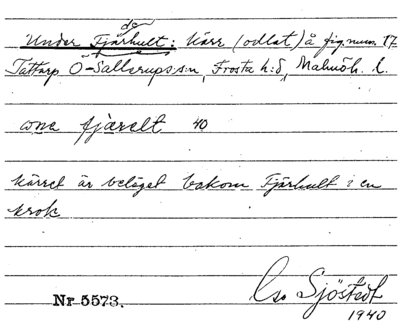 do
Under Fjärhult: Kärr (odlat) å fig.num. 17
Tattarp Ö-Sallerups sn, Frosta h:d, Malmöh. l.
fjærelt 40
Kärret är beläget bakom Fjärhult i en
krok
Nr 5573.
Sjöstedt
1940